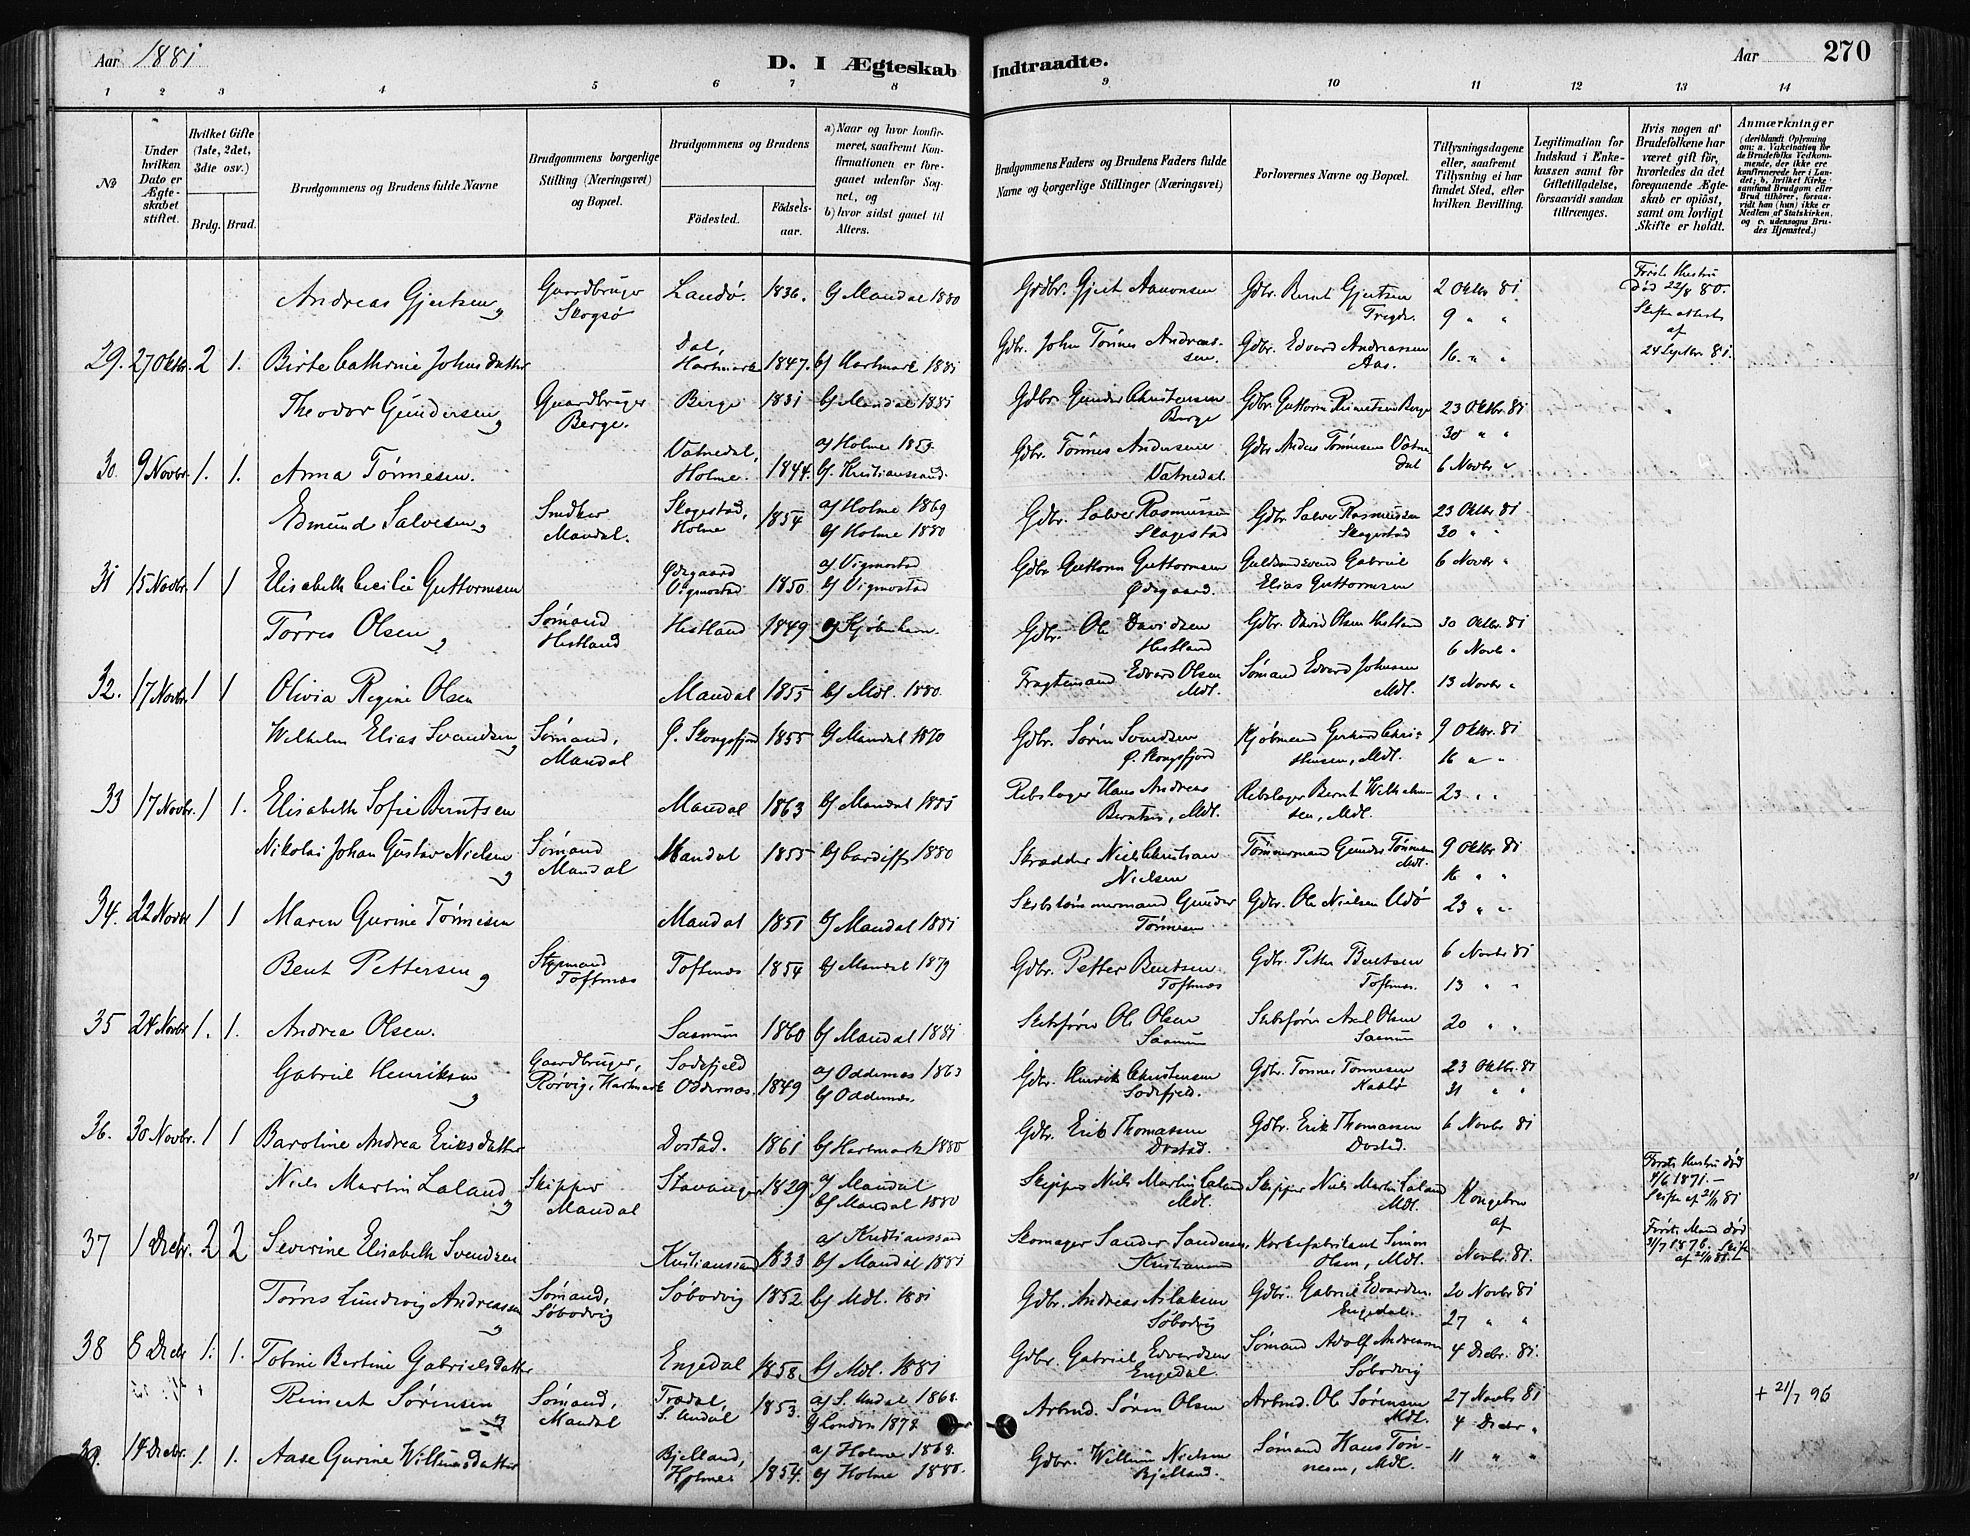 Aar 1881
D. I Ægteskab Indtraadte.
Aar 270
1 2 3 4 5 6 7 8 9 10 11 12 13 14
No
Under hvilken Dato er Ægteskabet stiftet.
Hvilket Gifte (1ste, 2det, 3die osv.)
Brdg. Brud.
Brudgommens og Brudens fulde Navne
Brudgommens borgerlige Stilling (Næringsvei) og Bopæl.
Brudgommens og Brudens
Födested.
Födselsaar.
a) Naar og hvor konfirmeret, saafremt Konfirmationen er foregaaet udenfor Sognet, og
b) hvor sidst gaaet til Alters.
Brudgommens Faders og Brudens Faders fulde Navne og borgerlige Stillinger (Næringsvei)
Forlovernes Navne og Bopæl.
Tillysningsdagene eller, saafremt Tillysning ei har fundet Sted, efter hvilken Bevilling.
Legitimation for Indskud i Enkekassen samt for Giftetilladelse, forsaavidt saadan tiltrænges.
Hvis nogen af Brudefolkene har været gift för, hvorledes da det foregaaende Ægteskab er oplöst, samt om lovligt Skifte er holdt.
Anmærkninger
(deriblandt Oplysning om: a. Vakcination for de Brudefolks Vedkommende, der ikke ere konfirmerede her i Landet; b. hvilket Kirkesamfund Brudgom eller Brud tilhörer, forsaavidt han (hun) ikke er Medlem af Statskirken, og c. udensogns Brudes Hjemsted.)
Andreas Gjertsen Gaardbruger Skogsø Landø. 1836. bf Mandal 1880 Grdbr. Gjert Aanonsen Gdbr. Bernt Gjertsen Tregde. 2 Oktbr 81 9 " " Første Hustru død 22/8 80. Skifteattest af 24 Septbr. 81.
29. 27 Oktbr. 2 1. Birte Cathrine Johnsdatter Dal, Hartmark 1847. bf Hartmark 1881 Gdbr. John Tønnes Andreassen. Gdbr. Edvard Andreassen Aas. 16. " "
Theodor Gundersen Gaardbruger Berge. Berge 1831 bf Mandal 1881 Gdbr. Gunder Christensen Berge Gdbr. Guttorm Reiertsen Berge 23 Oktbr. 81 30 " "
30. 9 Novbr. 1. 1. Anna Tønnesen. Vatnedal, Holme. 1844. af Holme 1859. bf. Kristianssand. Gdbr. Tønnes Andersen Vatnedal. Gdbr Anders Tønnesen Vatnedal 6 Novbr "
Edmund Salvesen Snedker Mandal. Skogestad, Holme 1854 af Holme 1869 bf Holme 1880 Gdbr. Salve Rasmussen Skogestad Gdbr. Salve Rasmussen Skogestad 23 Oktbr 81 30 " "
31 15 Novbr. 1 1 Elisabeth Cecilie Guttormsen Ødegaard Vigmostad 1850 af Vigmostad bf Vigmostad Gdbr. Guttorm Guttormsen Ødegaard. Guldsmedsvend Gabriel Elias Guttormsen 6 Novbr "
Torres Olsen Sømand Hestland Hestland 1849 bf Kjøbenhavn. Gdbr. Ole Davidsen Hestland Gdbr. David Olsen Hestland 30 Oktbr. 81 6 Novbr "
32. 17 Novbr. 1 1 Olivia Regine Olsen Mandal 1855 bf Mdl. 1880. Fragtemand Edvard Olsen Mdl. Sømand Edvard Johnsen Mdl. 13 Novbr "
Wilhelm Elias Svendsen Sømand, Mandal Ø. Skongsfjord 1855 bf Mandal 1870 Gdbr. Søren Svendsen Ø. Skongsfjord Kjøbmand Gerhard Christensen, Mdl. 9 Oktbr. 81 16 " "
33 17 Novbr. 1 1. Elisabeth Sofie Berntsen Mandal 1863 bf Mandal 1881 Rebslager Hans Andreas Berntsen, Mdl. Rebslager Bernt Wilhelmsen, Mdl. 23 " "
Nikolai Johan Gustav Nielsen Sømand Mandal Mandal 1855 bf Cardiff 1880 Skrædder Niels Christian Nielsen Tømmermand Gunder Tønnesen Mdl. 9 Oktbr 81 16 " "
34. 22 Novbr 1 1 Maren Gurine Tønnesen Mandal 1851 bf Mandal 1881 Skibstømmermand Gunder Tønnesen Gdbr. Ole Nielsen Udø 23 " "
Bent Pettersen Styrmand Toftnæs Toftnæs 1854 bf Mandal 1879 Gdbr. Petter Bentsen Toftnæs Gdbr. Petter Bentsen Toftnæs. 6 Novbr 81 13 " "
35 24 Novbr 1. 1. Andrea Olsen. Sanum 1860 bf Mandal 1881 Skibsfører Ole Olsen Sanum Skibsfører Axel Olsen Sanum 20 " "
Gabriel Henriksen Gaardbruger, Rørvig, Hartmark Sodefjeld Oddernæs. 1849 af Oddernæs 1863 bf Oddernæs. Gdbr. Henrik Christensen Sodefjeld. Gdbr. Tønnes Tønnesen 23 Oktbr. 81 31 " "
36. 30 Novbr. 1 1 Baroline Andrea Eriksdatter Dostad. 1861 bf Hartmark 1880 Gdbr. Erik Thomassen Dostad. Gdbr. Erik Thomassen Dostad. 6 Novbr 81
Niels Martin Laland Skipper Mandal Stavanger 1829 af Mandal bf Mandal 1880 Skipper Niels Martin Laland Mdl. Skipper Niels Martin Laland Mdl. Kongebrev af Novbr 81. Første Hustru død 4/6 1871. — Skifte af 21/11 81
37 1 Decbr. 2 2 Severine Elisabeth Svendsen Kristianssand 1833 af Kristianssand bf Mandal 1881 Skomager Sander Sandersen, Kristianssand Korkefabrikant Simon Olsen, Mdl. Første Mand død 21/7 1876. Skifte af 21/11 81.
Tønnes Lundvig Andreassen Sømand, Søbodvig Søbodvig 1852. bf Mdl. 1881 Gdbr. Andreas Aslaksen Søbodvig Gdbr. Gabriel Edvardsen Engedal. 20 Novbr 81 27 " "
38 8 Decbr 1. 1. Tobine Bertine Gabrielsdatter Engedal 1858. bf Mdl. 1881 Gdbr. Gabriel Edvardsen Engedal. Sømand Adolf Andreassen Søbodvig 4 Decbr. 81.
Reinert Sørensen Sømand, Mandal Trædal, S. Undal 1853. af S. Undal 1868. bf London 1878. Arbmd. Søren Olsen Arbmd. Ole Sørensen Mdl. 27 Novbr 81 4 Decbr " + 21/7 96
39. 14 Decbr. 1. 1. Aase Gurine Willumsdatter Bjelland, Holme 1854. af Holme 1868. bf Holme 1880. Gdbr. Willum Nielsen Bjelland. Sømand Hans Tønnesen, Mdl. 11 " "